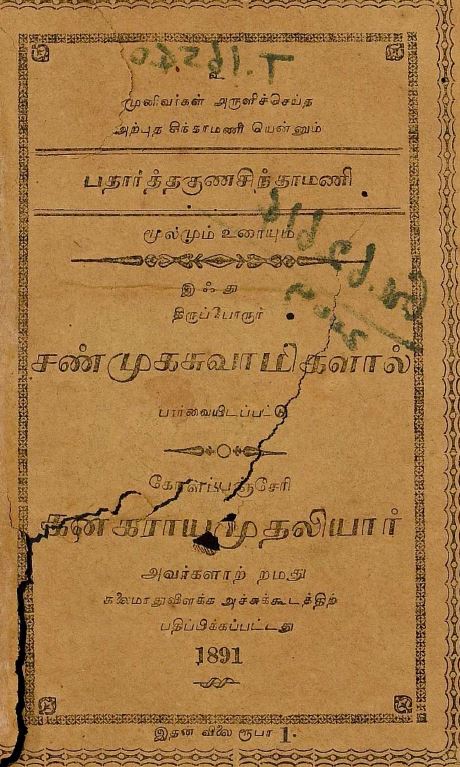 உ
முனிவர்கள் அருளிச்செய்த
அற்புத சிந்தாமணி யென்னும்
பதார்த்தகுணசிந்தாமணி
மூலமும் உரையும்
இஃது
திருப்போரூர்
சண்முகசுவாமிகளால்
பார்வையிடப்பட்டு
கோளப்பஞ்சேரி
கனகராயமுதலியார்
அவர்களாற் றமது
கலைமாதுவிளக்க அச்சுக்கூடத்திற்
பதிப்பிக்கப்பட்டது
1891
இதன் விலை ரூபா 1.